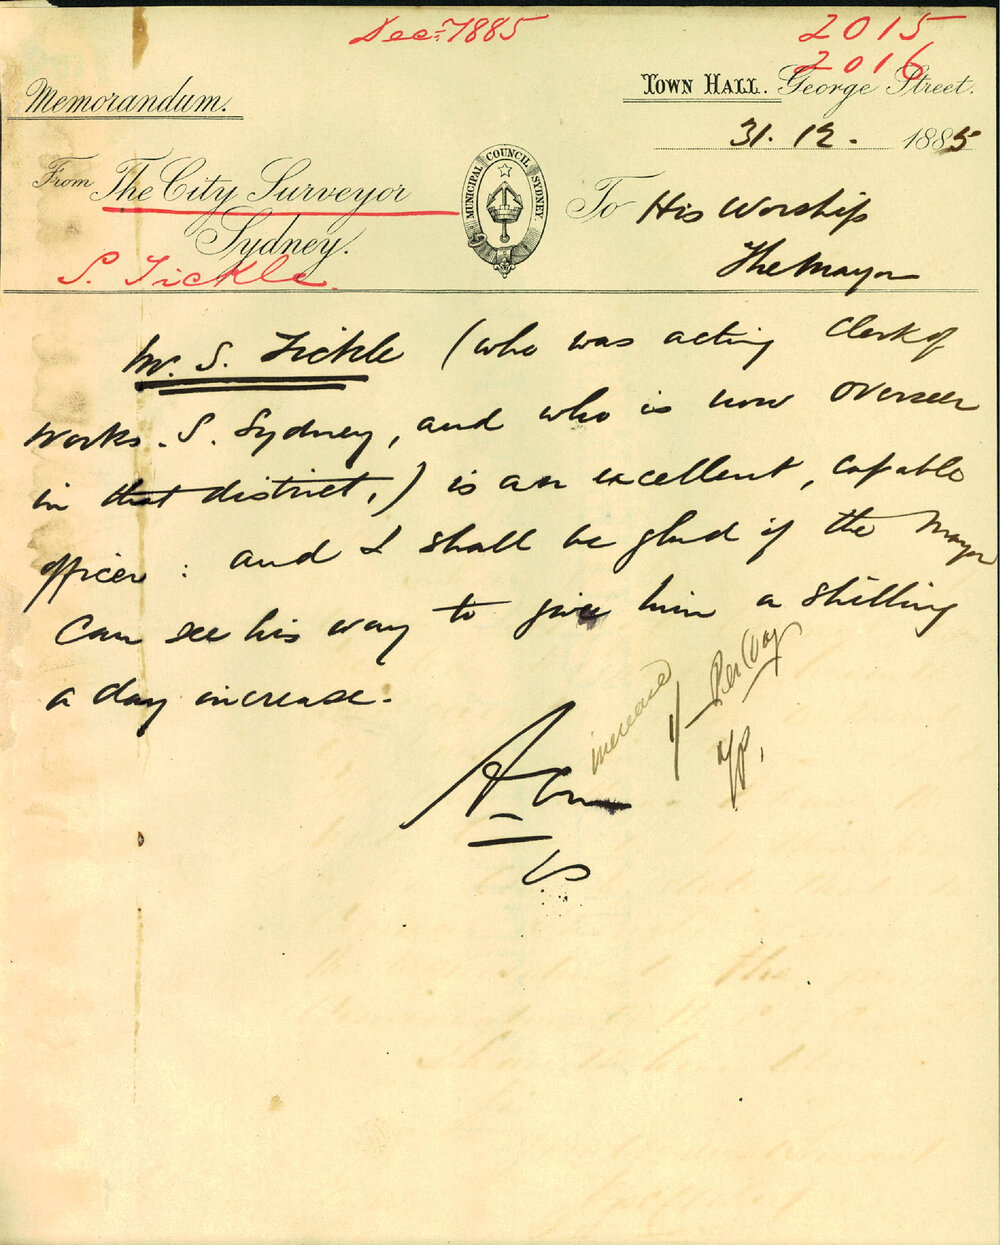 Dec: 1885
2015
2016
Memorandum.
TOWN HALL. George Street.
31. 12. 1885
From The City Surveyor
Sydney.
MUNICIPAL COUNCIL SYDNEY.
To His Worship
The Mayor
S. Tickle
Mr. S. Tickle (who was acting Clerk of
Works. S. Sydney, and who is now overseer
in that district,) is an excellent, capable
officer: and I shall be glad if the Mayor
can see his way to give him a shilling
a day increase.
increased
1/- Per Day
CS